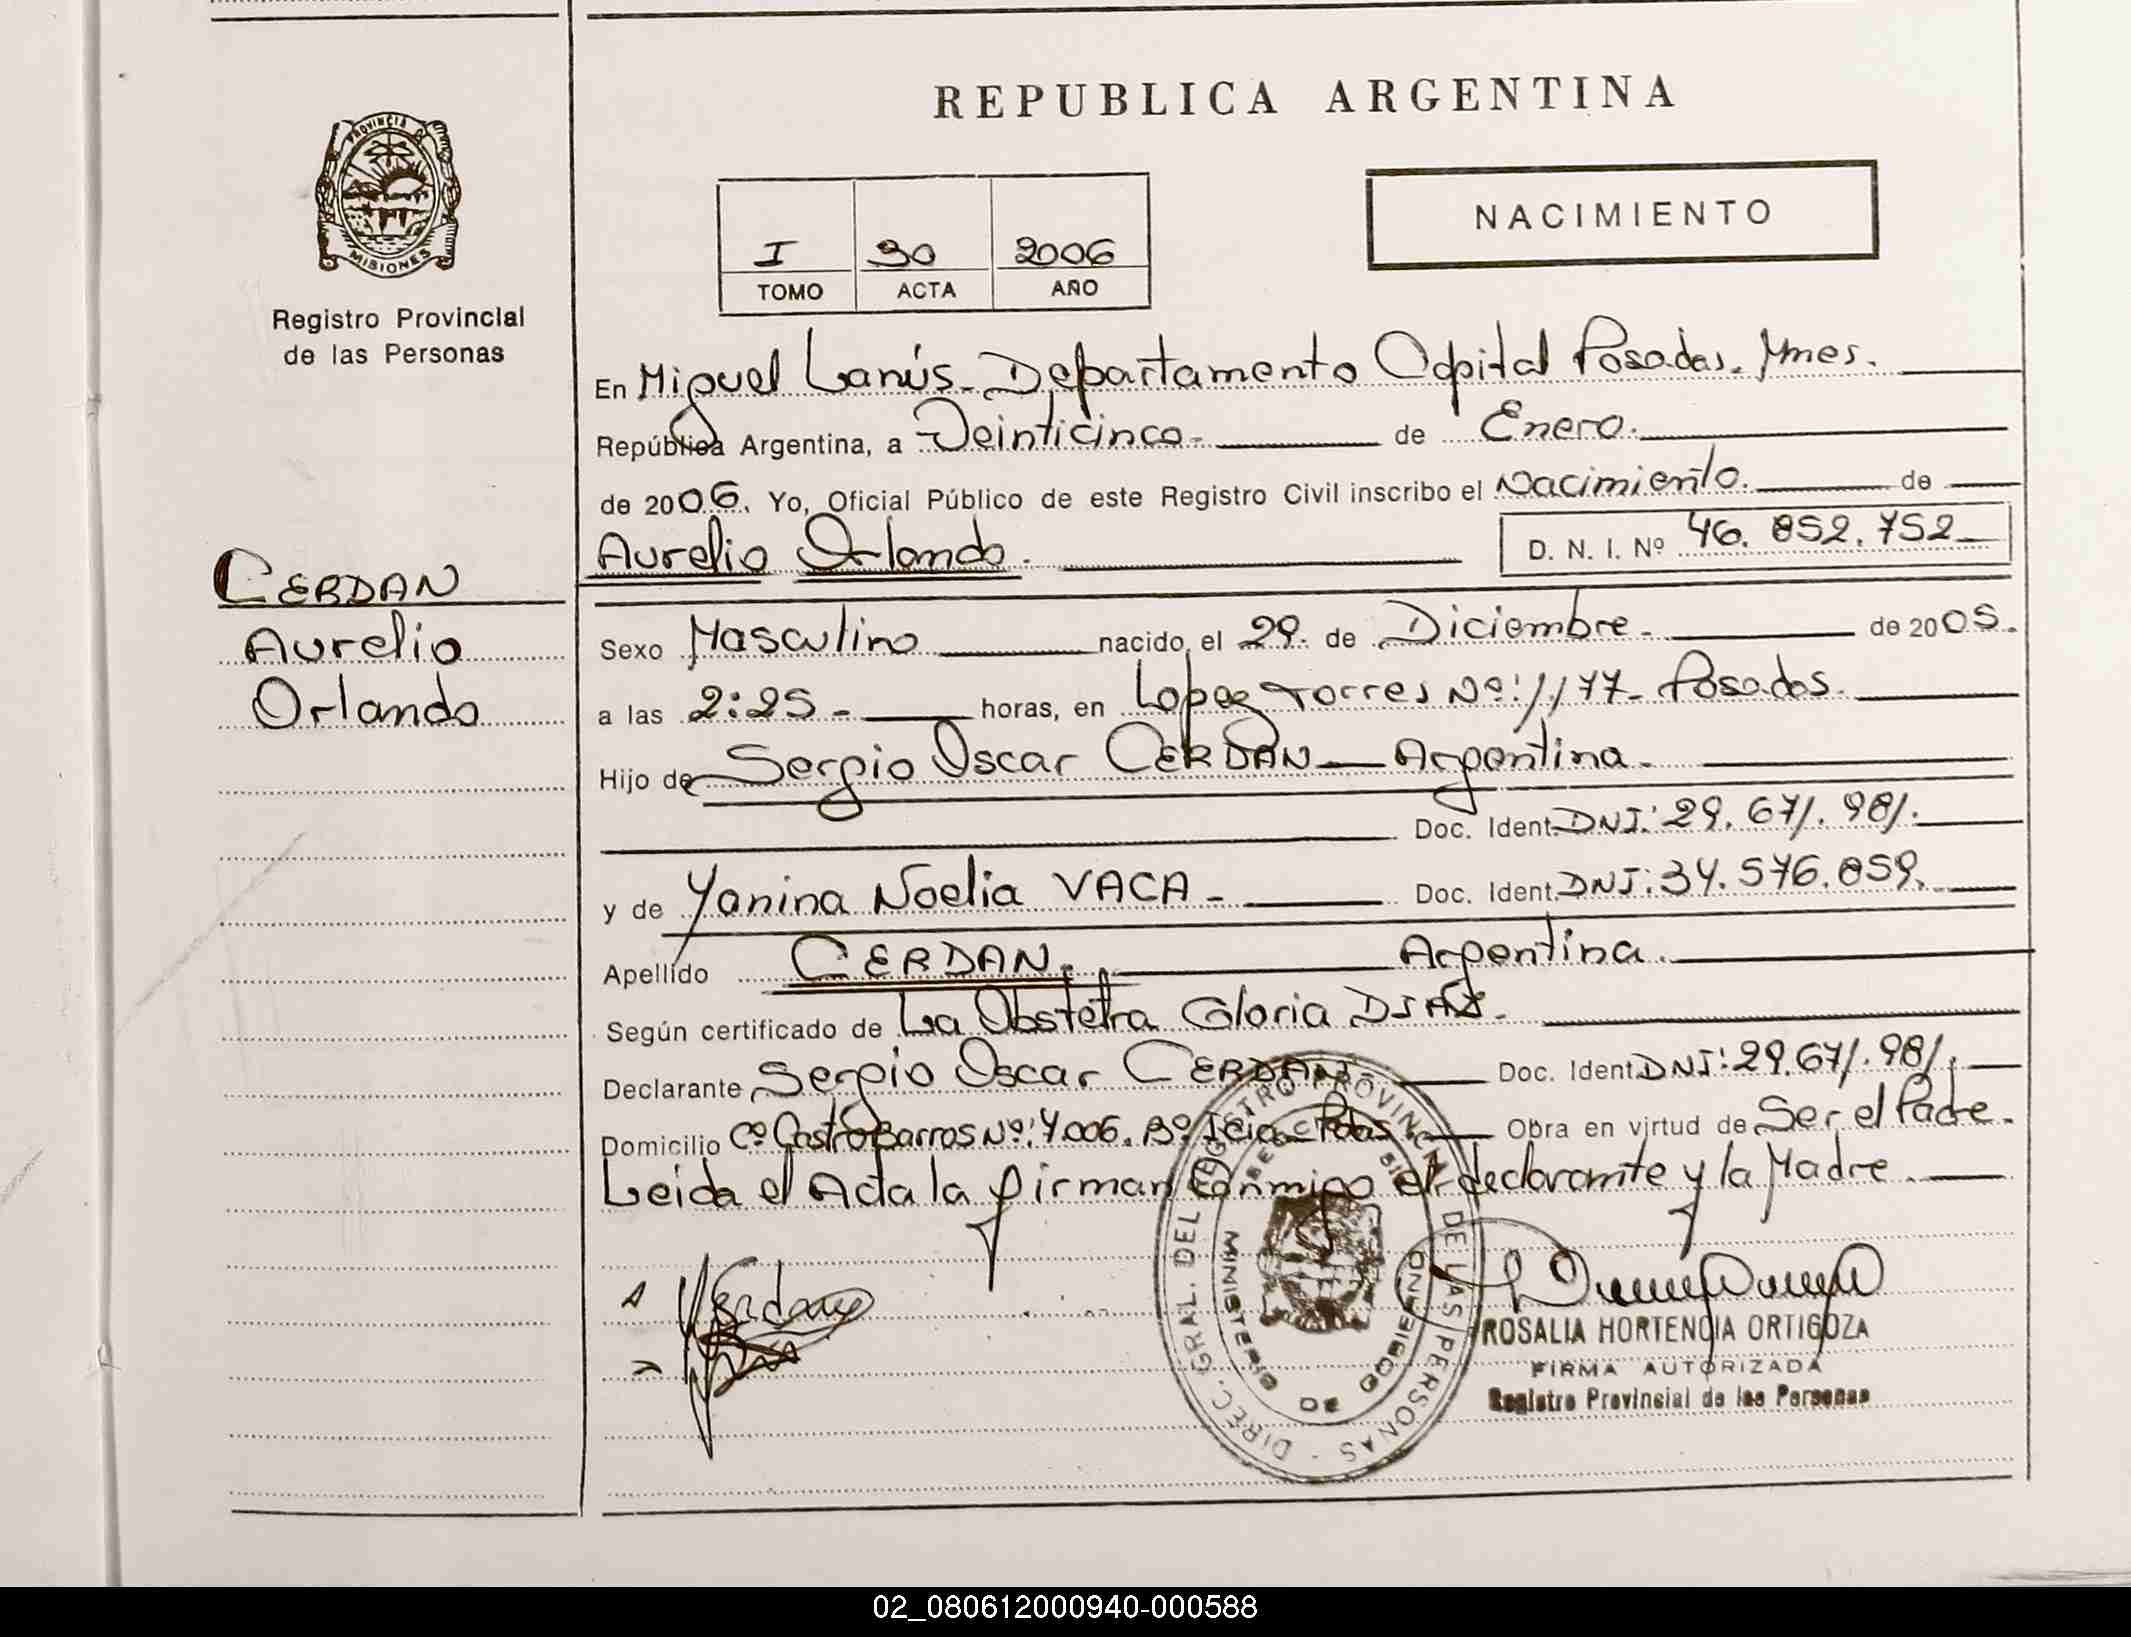 REPUBLICA ARGENTINA
PROVINCIA DE
MISIONES
Registro Provincial
de las Personas
NACIMIENTO
I 30 2006
TOMO ACTA AÑO
En Miguel Lanús - Departamento Capital Posadas. Mnes.
República Argentina, a Veinticinco - de Enero.
de 2006. Yo, Oficial Público de este Registro Civil inscribo el Nacimiento. de
Aurelio Orlando. D. N. I. Nº 46.852.752
CERDAN
Aurelio
Orlando
Sexo Masculino nacido el 29. de Diciembre. de 2005.
a las 2:25 - horas, en Lopez Torres Nº: 1177 - Posadas.
Hijo de Sergio Oscar CERDAN - Argentina.
Doc. Ident. DNI: 29.671.981.
y de Yanina Noelia VACA - Doc. Ident. DNI: 34.576.859.
Apellido CERDAN. Argentina.
Según certificado de La Obstetra Gloria DIAZ.
Declarante Sergio Oscar CERDAN Doc. Ident. DNI: 29.671.981.
Domicilio Cº Castro Barros Nº: 7.006. Bº - Pdas. Obra en virtud de Ser el Padre.
Leida el Acta la firman Conmigo el declarante y la Madre.
DIREC. GRAL. DEL REGISTRO PROVINCIAL DE LAS PERSONAS -
MINISTERIO DE GOBIERNO
ROSALIA HORTENCIA ORTIGOZA
FIRMA AUTORIZADA
Registro Provincial de las Personas
02_080612000940-000588